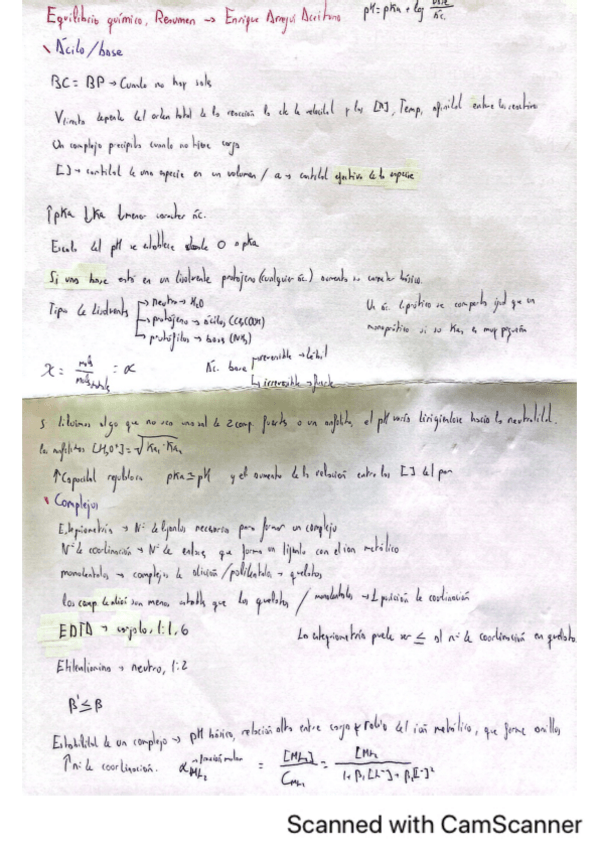 Equilibrio químico, Resumen → Enrique Arroyo pH = pKa + log base/ác.
Ácido/base
BC = BP → Cuando no hay sales
depende del orden total de la reacción, la cte de la velocidad y las [A], Temp, afinidad entre los reactivos
Un complejo precipita cuando no tiene carga
[ ] → cantidad de una especie en un volumen / a → cantidad efectiva de la especie
↑pKa ↓Ka ↓menor caracter ác.
Escala del pH se establece desde 0 a pka
Si una base está en un disolvente protógeno (cualquier ác.) aumenta su caracter básico.
Tipo de disolvente → neutro → H₂O
→ protógeno → ácidos (CH₃COOH)
→ protófilos → bases (NH₃)
Un ác. diprótico se comporta igual que un
monoprótico si su Ka₂ es muy pequeña
Ác. base reversible → débil
irreversible → fuerte
S diluimos algo que no sea una sal de 2 comp. fuertes o un anfolito, el pH varía dirigiendose hacia la neutralidad.
los anfolitos [H₃O⁺] = √Ka₁·Ka₂
↑Capacidad reguladora pKa ≃ pH y el aumento de la relación entre las [ ] del par
Complejos
Estequiometria → Nº de ligandos necesarios para formar un complejo
Nº de coordinación → Nº de enlaces que forma un ligando con el ion metálico
monodentados → complejos de adición / polidentados → quelatos
los comp. de adición son menos estables que los quelatos / monodentados → 1 posición de coordinación
EDTA → 1:1, 6
La estequiometría puede ser ≤ al nº de coordinación en quelatos.
Etilendiamina → neutro, 1:2
β' ≤ β
Estabilidad de un complejo → pH básico, relación alta entre carga y radio del ión metálico, que forme anillos,
↑nº de coordinación. = [ML₂]/C =
Scanned with CamScanner